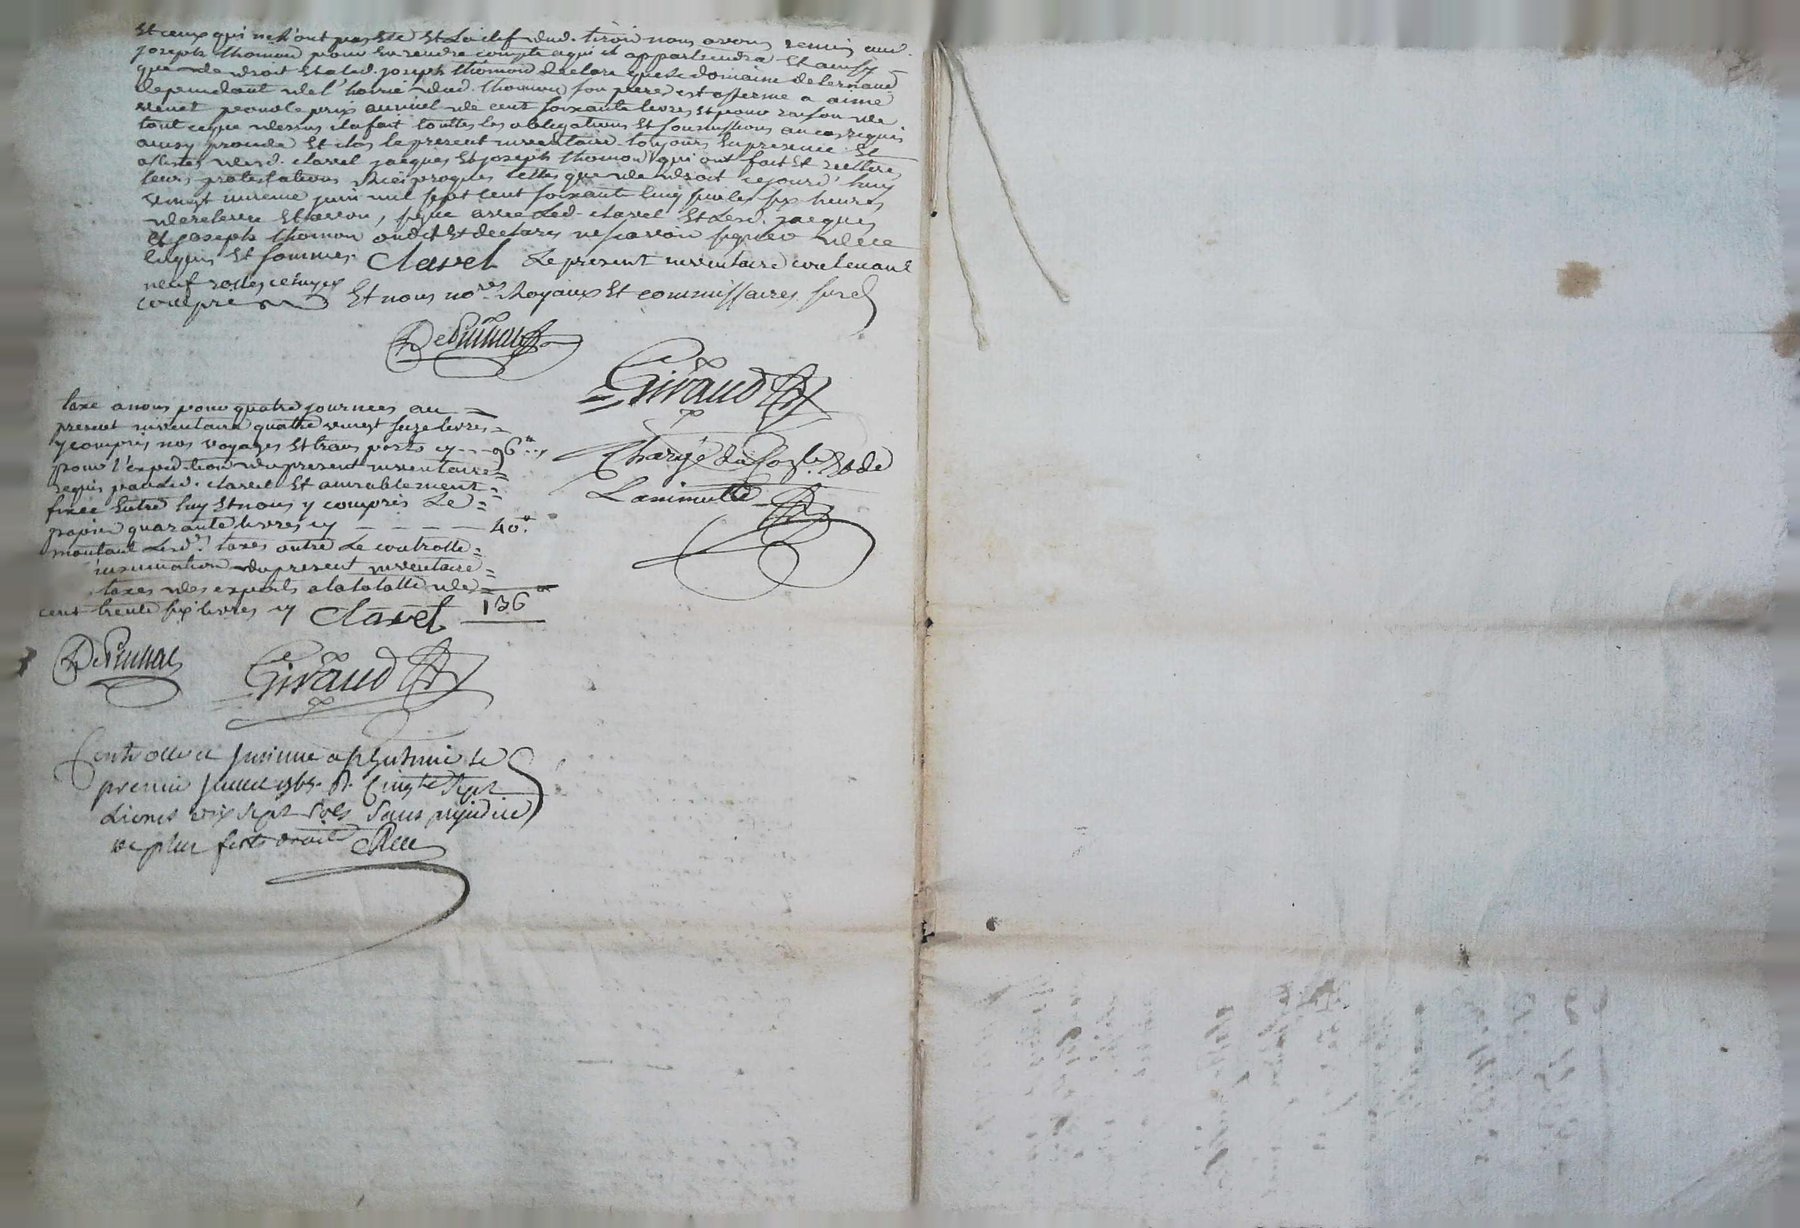 Et ceux qui ne l'ont pas été Et La clef dud. tiroir nous avons remis aud.
joseph thomon pour En rendre compte a qui il appartiendra Et ainsy
que de droit Et a led. joseph thomon declaré que Le domaine de
dependant de l'hoirie dud. thomon son pere est afferme a aimé
pour le prix annuel de cent soixante livres Et pour raison de
tout ce que dessus il a fait touttes les obligations Et soumissions au cas requis
ainsy procedé Et clos le present inventaire toujours En presence Et
assistés desd. clavel jacques Et joseph thomon qui ont fait Et reitéré
leurs protestations Reciproques telles que de droit cejourd'huy
vingt juin mil sept cent soixante cinq sur les six heures
de relevée Et avons signé avec Led. clavel Et Lesd. jacques
Et joseph thomon ont dit Et declaré ne scavoir signer de ce
Enquis Et sommés. Clavel Le present inventaire contenant
neuf rolles celuy cy
compris Et nous no.res Royaux Et commissaires
Giraud
taxé a nous pour quatre journées au
present inventaire quatre vingt seize livres
y compris nos voyages Et transports cy 96
pour l'expedition du present inventaire
requis par led. clavel Et amiablement
fixée Entre luy Et nous y compris Le
papier quarante livres cy 40
montant Lesd. taxes outre Le controlle
insinuation du present inventaire
taxes des experts a la totalle de
cent trente six livres cy Clavel 136
Chargé de
La minutte
Giraud
Controllé et Insinué a le
premier 1765. R. Cinqte Sept
Livres dix sept sols Sans prejudice
de plus forts droits